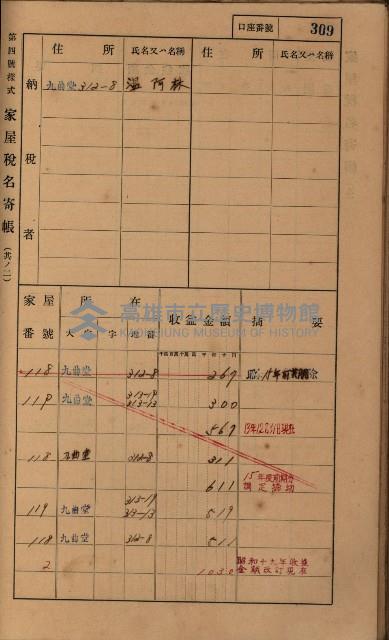 口座番號 309
第四號樣式 家屋稅名寄帳 (其ノ二)
納稅者
住所 氏名又ハ名稱 住所 氏名又ハ名稱
九曲堂 312-8 溫阿林
家屋番號 所在 收益金額 摘要
大字 字 地番
118 九曲堂 312-8 269
119 九曲堂 313-19 300
313-13
569 13年12月31日現在
118 九曲堂 312-8 311
611 15年度前期分
119 九曲堂 313-19 519
313-13
118 九曲堂 312-8 511
2 1030 昭和十九年收益
金額改訂現在
高雄市立歷史博物館
KAOHSIUNG MUSEUM OF HISTORY